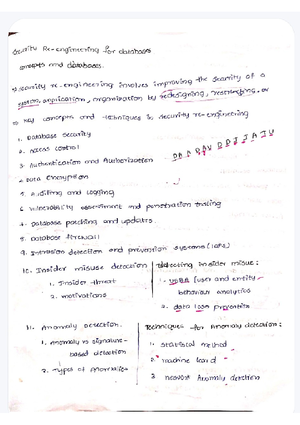 Security Re-engineering for databases
concepts and databases.
⇒ Security re-engineering involves improving the security of a
system, application, organization by redesigning, restructuring, or
⇒ Key concepts and techniques in security re-engineering
1. Database Security
2. Access control
3. Authentication and Authorization
4. Data Encryption
5. Auditing and logging
6. Vulnerability assessment and penetration testing
7. Database patching and updates.
8. Database firewall
9. Intrusion detection and prevention systems (IDPS)
10. Insider misuse detection
1. Insider threat
2. motivations
Detecting insider misuse:
1. UEBA (user and entity
behaviour analytics
2. data loss prevention
11. Anomaly detection.
1. anomaly vs signature-
based detection
2. types of anomalies
Techniques for Anomaly detection:
1. statistical method
2. machine learn
3. network Anomaly detection